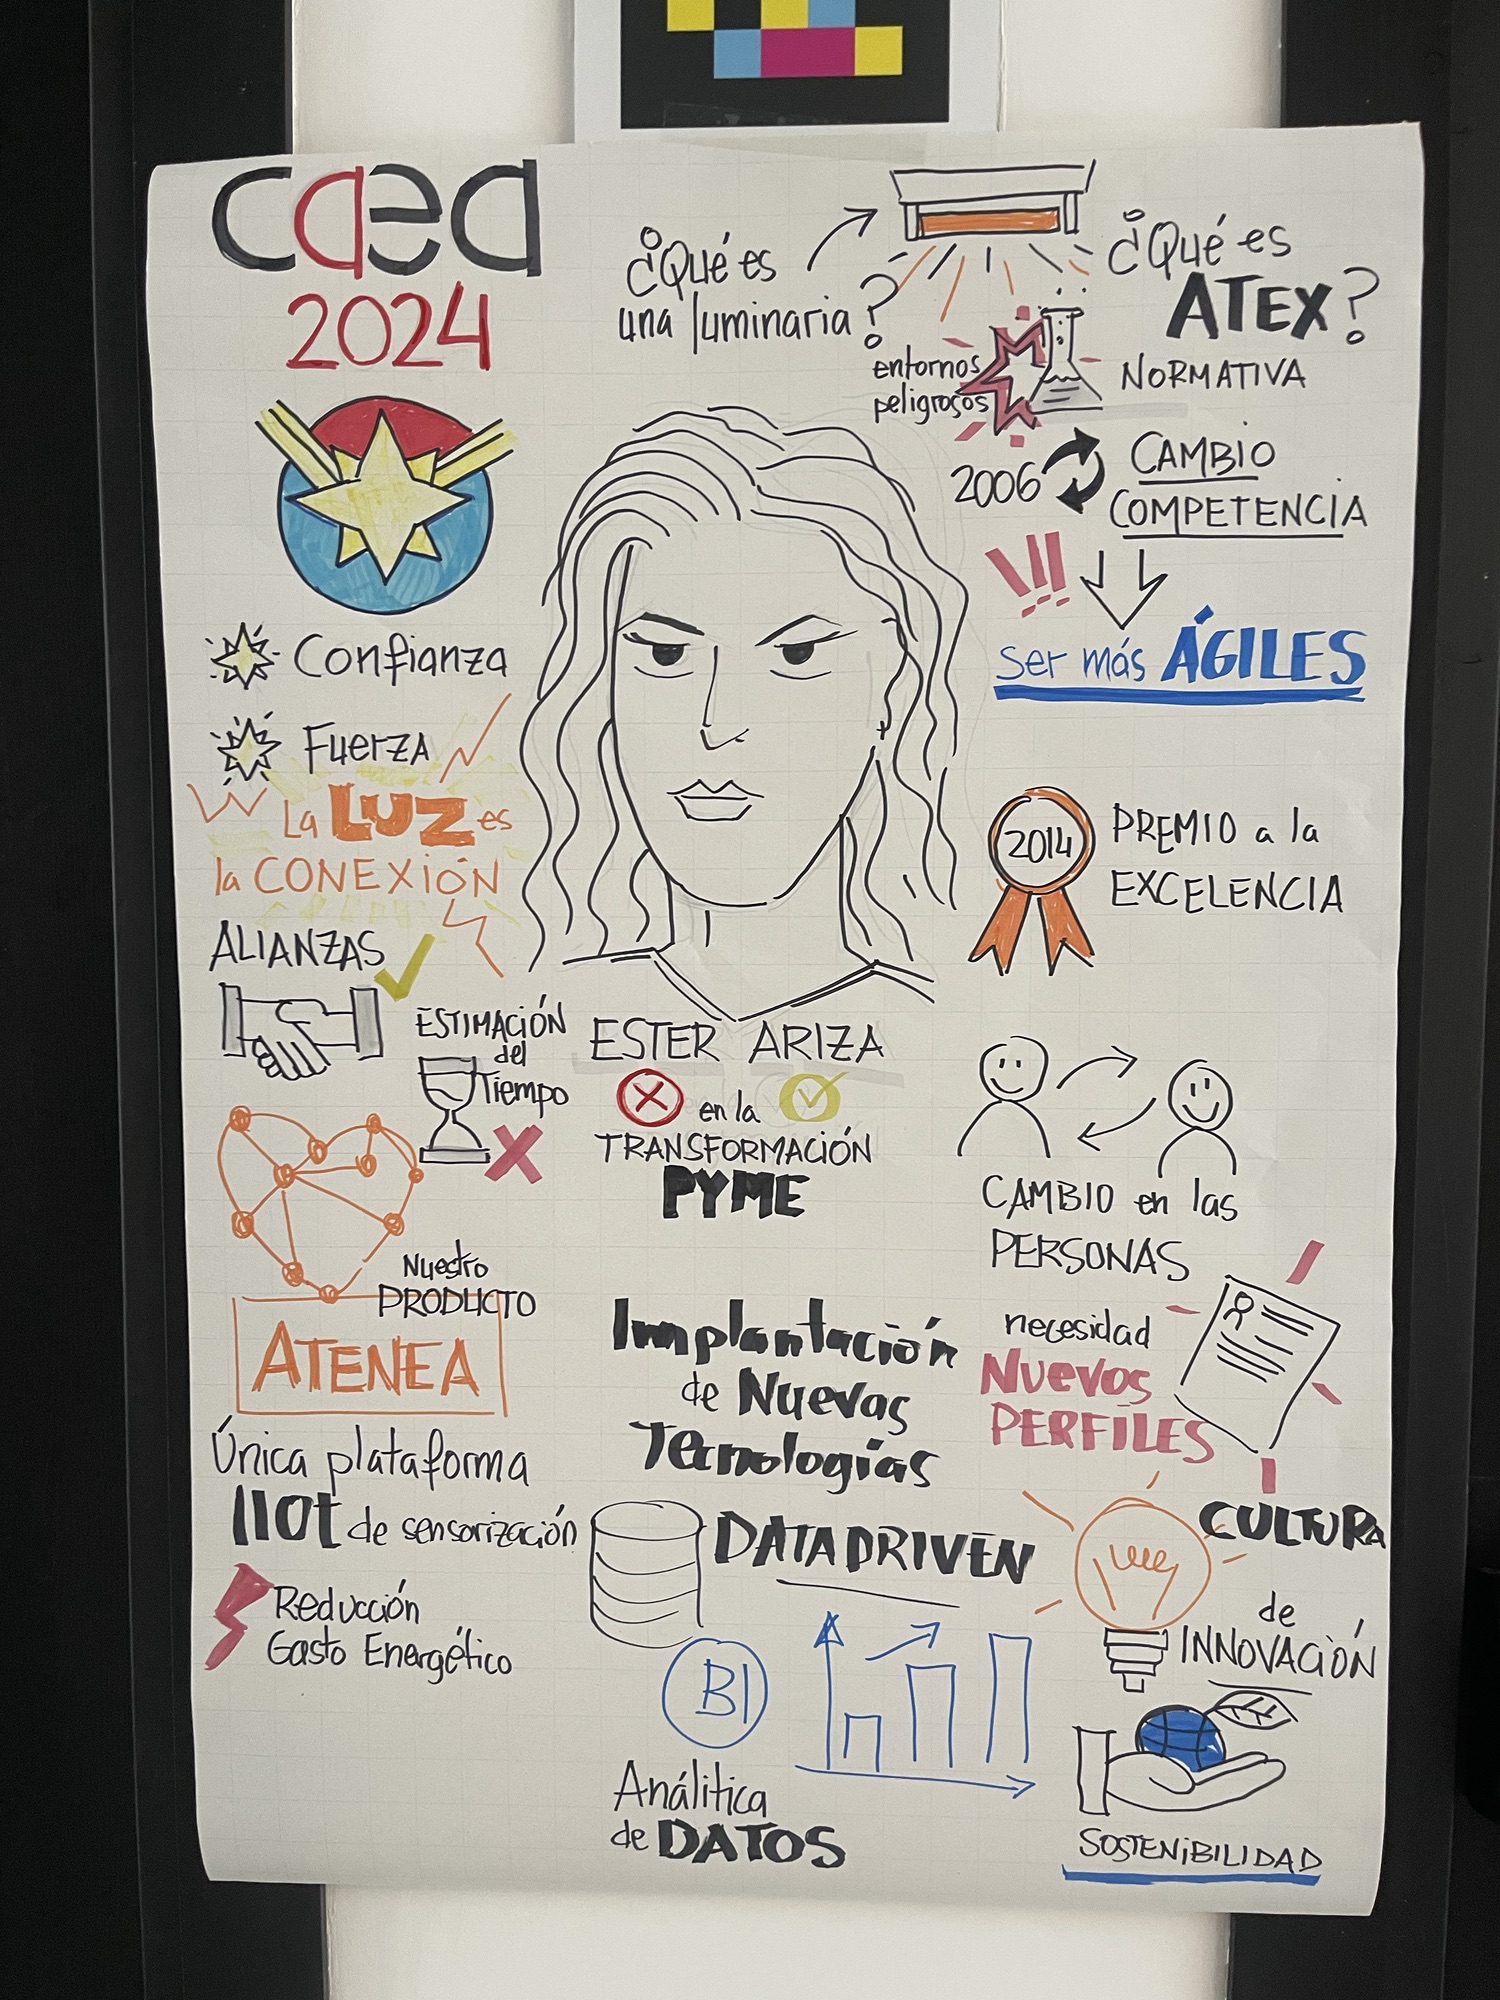 caea
2024
Confianza
Fuerza
La LUZ es
la CONEXIÓN
ALIANZAS
ESTIMACIÓN
del
Tiempo
Nuestro
PRODUCTO
ATENEA
Única plataforma
IIOT de sensorización
Reducción
Gasto Energético
¿Qué es
una luminaria?
ESTER ARIZA
en la
TRANSFORMACIÓN
PYME
Implantación
de Nuevas
Tecnologías
DATA DRIVEN
BI
Análitica
de DATOS
¿Qué es
ATEX?
NORMATIVA
entornos
peligrosos
2006
CAMBIO
COMPETENCIA
!!!
Ser más ÁGILES
2014
PREMIO a la
EXCELENCIA
CAMBIO en las
PERSONAS
necesidad
Nuevos
PERFILES
CULTURA
de
INNOVACIÓN
SOSTENIBILIDAD